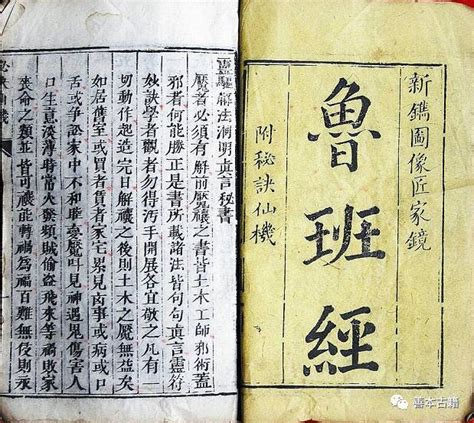 新鐫圖像匠家鏡
魯班經
附秘訣仙機
靈驅解法洞明眞言秘書
魘者必須有解前魘禳之書皆土木工師邪術蓋
邪者何能勝正是書所載諸法皆句句眞言靈符
妙訣學者觀者勿得汚手開展各宜敬之凡有一
切動作起造完日解禳之後則土木之魘無益矣
如居舊室或買者賃者家宅累見凶事或病或口
舌或爭訟家中不和睡夢魘叫見神遇鬼傷害人
口生意淡薄時常火發頻賊偷盜飛來等禍敗家
喪命之類並皆可禳能轉禍為福百難無侵則永
善本古籍